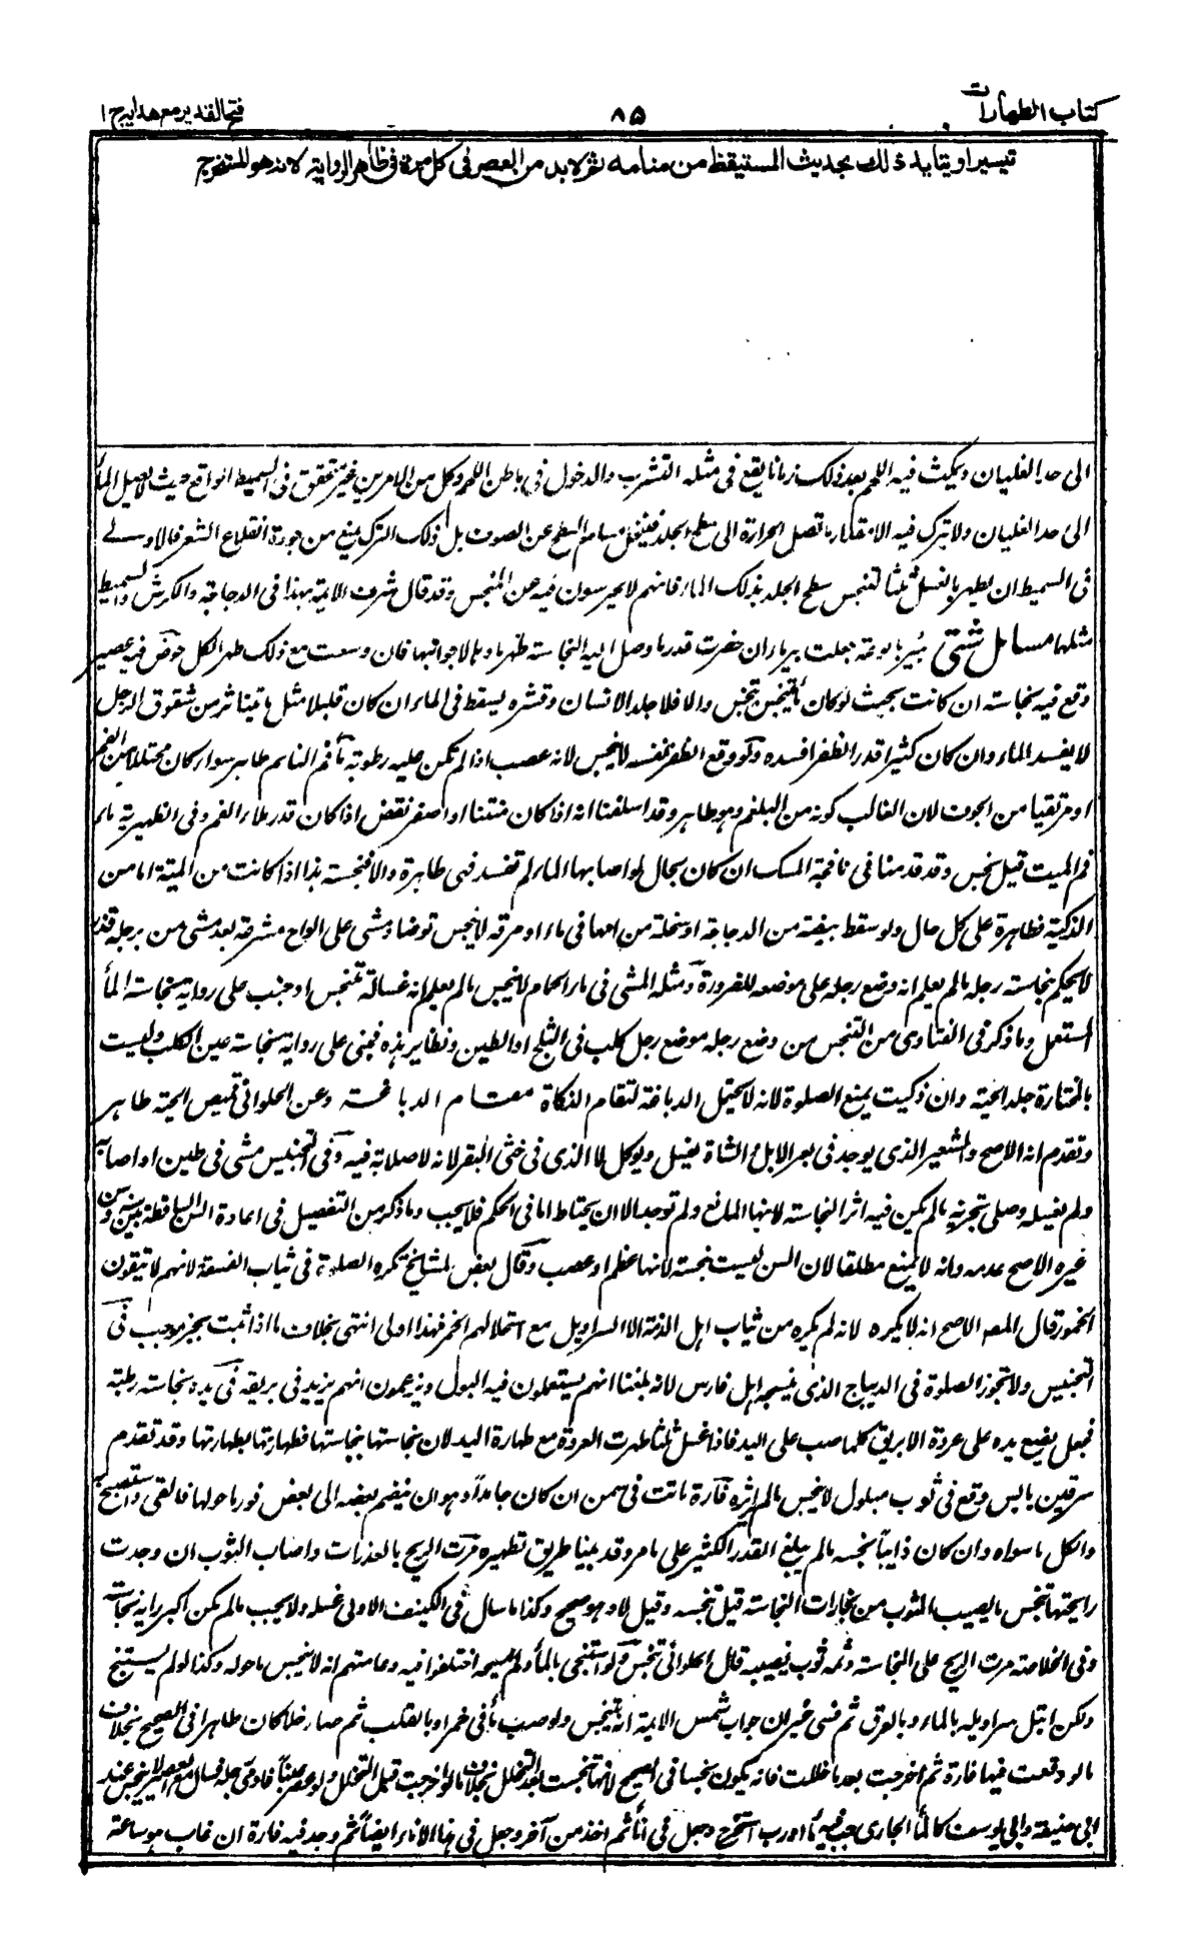 كتاب الطهارات
۸۵
فتح القدير مع هداية ج ۱
تيسيرا ويتايد ذلك بحديث المستيقظ من منامه ثم لا بد من العصر في كل مرة في ظاهر الرواية لانه هو المستخرج
الى حد الغليان ويمكث فيه اللحم بعد ذلك زمانا يقع في مثله التشرب والدخول في باطن اللحم وكل من الامرين غير متحقق في السميط الواقع حيث لا يصل الماء
الى حد الغليان ولا يترك فيه الا مقدار ما تصل الحرارة الى سطح الجلد فتنحل مسام السطح عن الصوف بل ذلك الترك يمنع من جودة انقلاع الشعر فالاولى
في السميط ان يطهر بالغسل ثلثا لتنجس سطح الجلد بذلك الماء فانهم لا يحترسون فيه عن المنجس وقد قال شرف الائمة بهذا في الدجاجة والكرش والسميط
مثلها مسائل شتى بئر بالوعة جعلت بير ماء ان حفرت قدر ما وصل اليه النجاسة طهر ماؤها لا جوانبها فان وسعت مع ذلك طهر الكل حوض فيه عصير
وقع فيه نجاسة ان كانت بحيث لو كان ماء تنجس تنجس والا فلا جلد الانسان وقشره يسقط في الماء ان كان قليلا مثل ما يتناثر من شقوق الرجل
لا يفسد الماء وان كان كثيرا قدر الظفر افسده ولو وقع الظفر نفسه لا ينجس لانه عصب اذا لم تكن عليه رطوبة ماء فم النائم طاهر سواء كان متحللا من الفم
او مرتقيا من الجوف لان الغالب كونه من البلغم وهو طاهر وقد اسلفنا انه اذا كان منتنا او اصفر نقض اذا كان قدر ملاء الفم وفي الظهيرية ماء
فم الميت قيل نجس وقد قدمنا في نافجة المسك ان كان بحال لو اصابها الماء لم تفسد فهي طاهرة والا فنجسة هذا اذا كانت من الميتة اما من
الذكية فطاهرة على كل حال ولو سقط بيضة من الدجاجة او سخلة من امها في ماء او مرقة لا ينجس توضا ومشى على الواح مشرعة بعد مشي من برجله قذر
لا يحكم بنجاسة رجله ما لم يعلم انه وضع رجله على موضعه للضرورة ومثله المشي في ماء الحمام لا ينجس ما لم يعلم انه غسالة متنجس او جنب على رواية نجاسة الماء
المستعمل وما ذكر في الفتاوى من التنجس من وضع رجله موضع رجل كلب في الثلج او الطين ونظائر هذه فمبني على رواية نجاسة عين الكلب وليست
بالمختارة جلد الحية وان ذكيت يمنع الصلوة لانه لا يحتمل الدباغة لتقام الذكاة مقام الدباغة وعن الحلواني قميص الحية طاهر
وتقدم انه الاصح والشعير الذي يوجد في بعر الابل والشاة يغسل ويؤكل لا الذي في خثى البقر لانه لا صلابة فيه وفي التجنيس مشى في طين او اصابه
ولم يغسله وصلى تجزيه ما لم يكن فيه اثر النجاسة لانها المانع ولم توجد الا ان يحتاط اما في الحكم فلا يجب وما ذكر من التفصيل في اعادة السن الساقطة بين سنه وسن
غيره الاصح عدمه وانه لا يمنع مطلقا لان السن ليست نجسة لانها عظم او عصب وقال بعض المشايخ تكره الصلوة في ثياب الفسقة لانهم لا يتقون
الخمور قال المصـ الاصح انه لا يكره لانه لم يكره من ثياب اهل الذمة الا السراويل مع استحلالهم الخمر فهذا اولى انتهى بخلاف ما اذا ثبت بخبر موجب في
التجنيس ولا تجوز الصلوة في الديباج الذي ينسجه اهل فارس لانه بلغنا انهم يستعملون فيه البول ويزعمون انهم يزيد في بريقه في يده نجاسة رطبة
فجعل يضع يده على عروة الابريق كلما صب على اليد فاذا غسل ثلثا طهرت العروة مع طهارة اليد لان نجاستها بنجاستها فطهارتها بطهارتها وقد تقدم
سرقين يابس وقع في ثوب مبلول لا ينجس ما لم ير اثره فارة ماتت في سمن ان كان جامدا وهو ان ينضم بعضه الى بعض قور ما حولها فالقي واستصبح به
واكل ما سواه وان كان ذائبا نجسه ما لم يبلغ القدر الكثير على ما مر وقد بينا طريق تطهيره مرت الريح بالعذرات واصاب الثوب ان وجدت
رايحتها تنجس ما يصيب الثوب من بخارات النجاسة قيل تنجسه وقيل لا وهو صحيح وكذا ما سال في الكنيف الاولى غسله ولا يجب ما لم يكن اكبر رايه نجاسة
وفي الخلاصة مرت الريح على النجاسة وثمه ثوب نصيبه قال الحلواني تنجس ولو استنجى بالماء ولم يمسحه اختلفوا فيه وعامتهم انه لا ينجس ما حوله وكذا لو لم يستنج
ولكن ابتل سراويله بالماء او بالعرق ثم فسى غير ان جواب شمس الائمة انه يتنجس ولو صب ماء في خمر او بالقلب ثم صار خلا كان طاهرا في الصحيح بخلاف
ما لو وقعت فيها فارة ثم اخرجت بعد ما تخللت فانه يكون نجسا في الصحيح لانها تنجست بعد التخلل بخلاف ما لو اخرجت قبل التخلل ولو عصر عنبا فادمى رجله فسال مع العصير لا ينجس عند
ابي حنيفة وابي يوسف كالماء الجاري استخرج وجعل في اناء ثم اخذ من آخر وجعل في هذا الاناء ايضا ثم وجد فيه فارة ان غاب هو ساعة